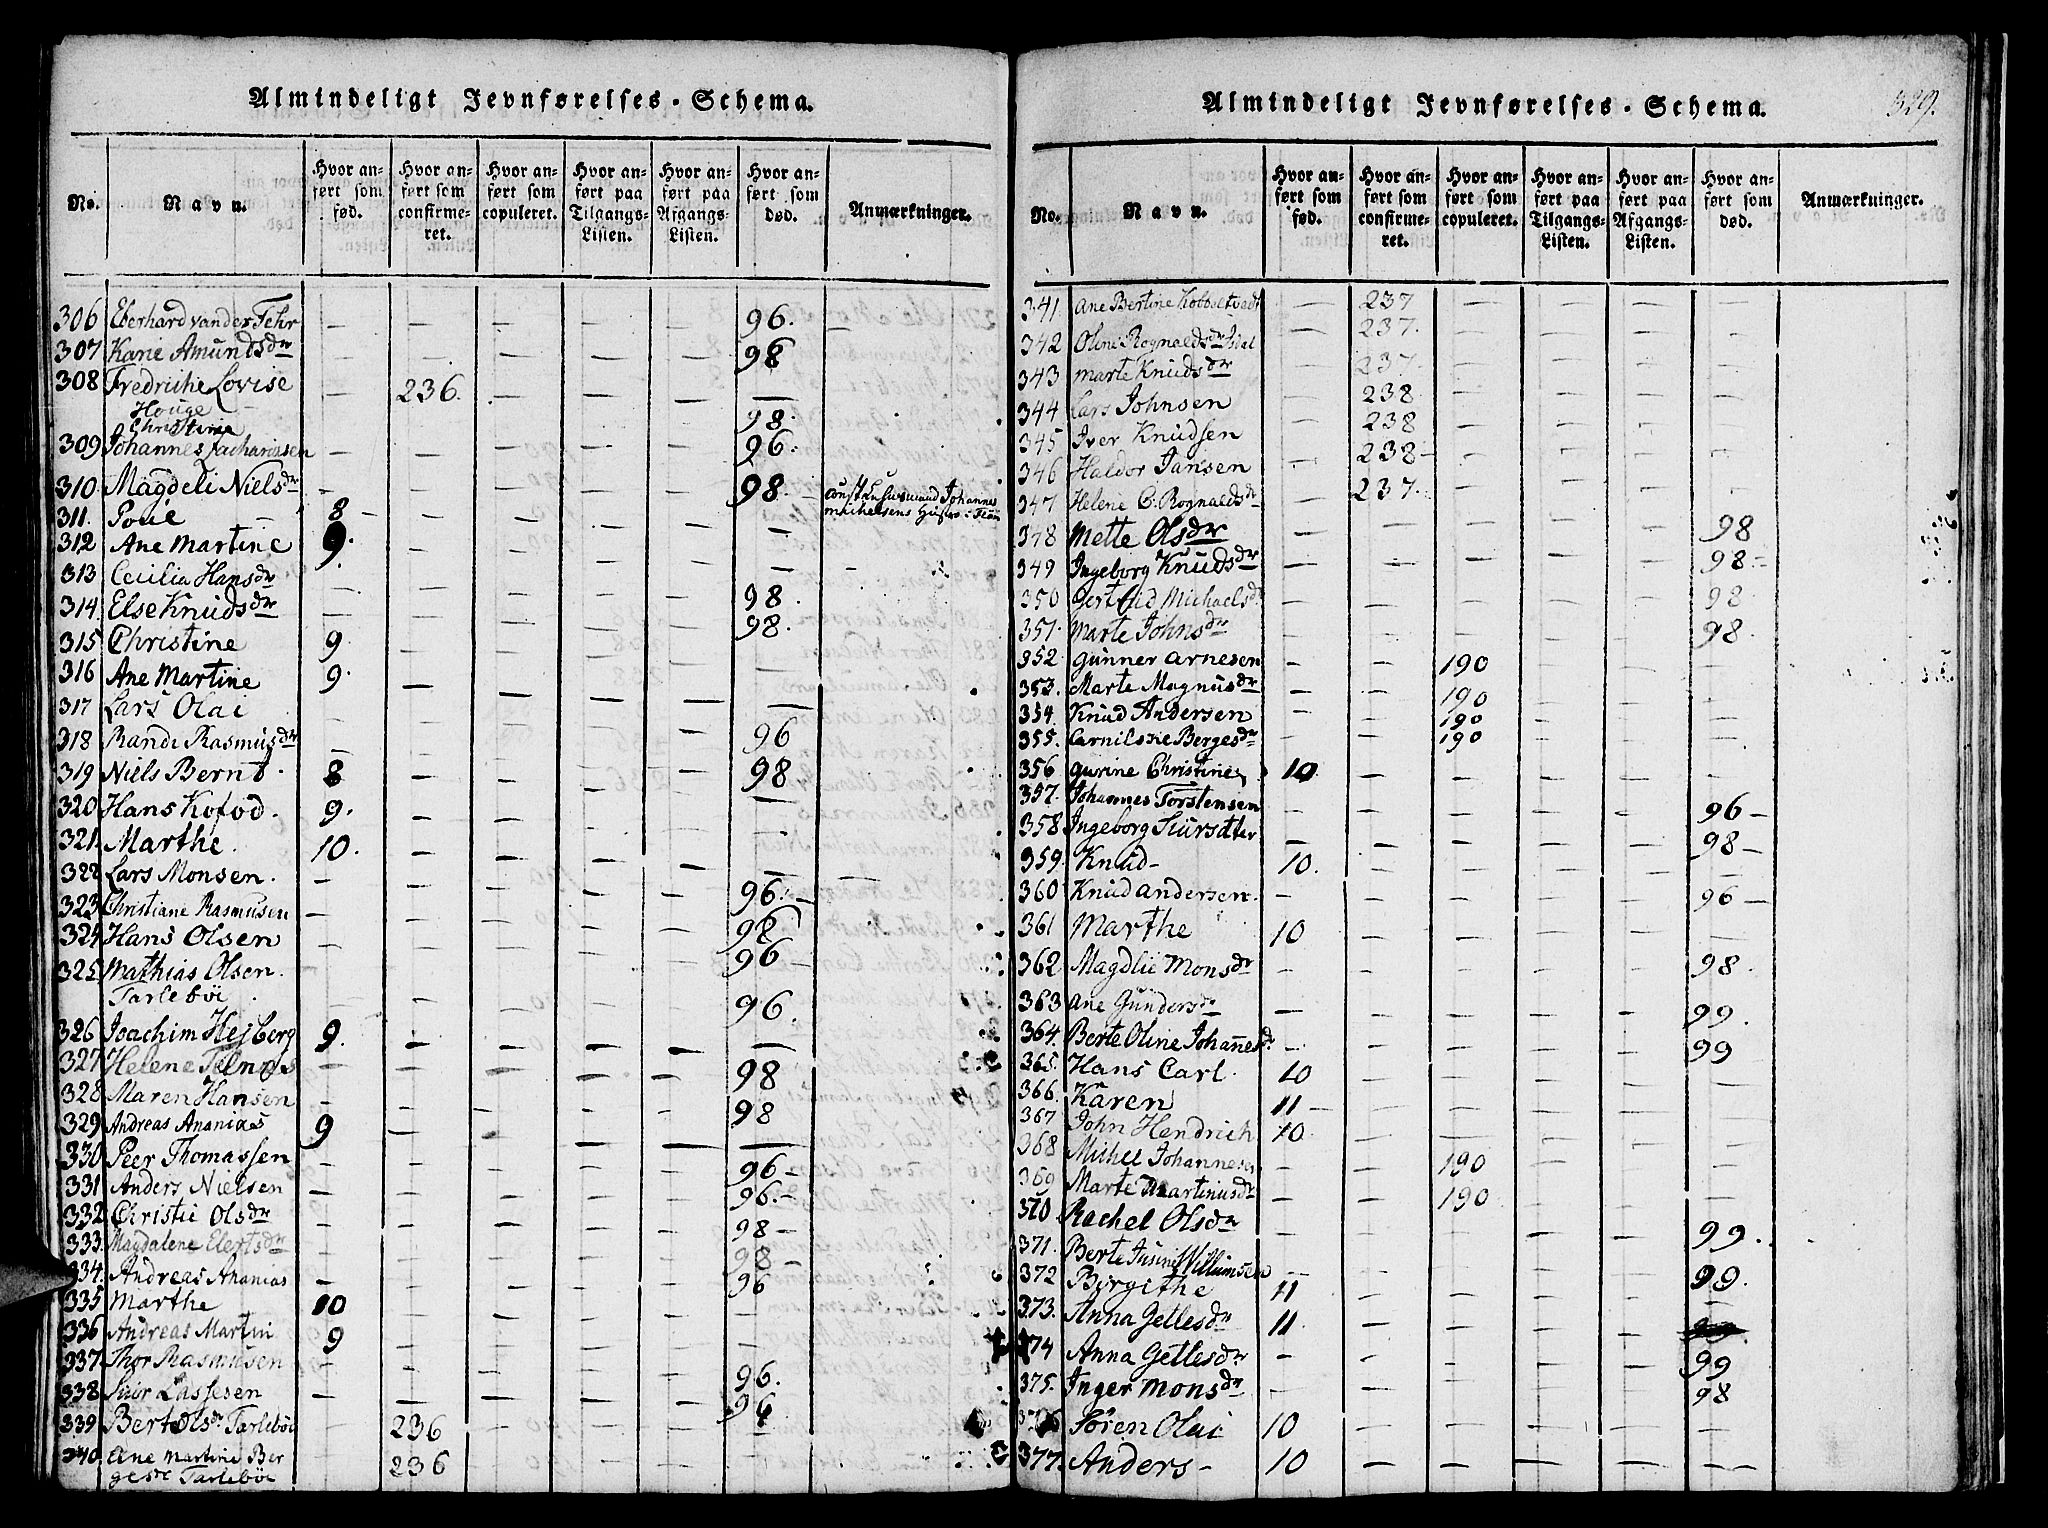 Almindeligt Jevnførelses-Schema.
No. Navn. Hvor anført som fød. Hvor anført som confirmeret. Hvor anført som copuleret. Hvor anført paa Tilgangs-Listen. Hvor anført paa Afgangs-Listen. Hvor anført som død. Anmærkninger.
306 Eberhard vander Fehr — — — — — 96. —
307 Karie Amundsdr — — — — — 98
308 Fredriche Lovise — 236. — — — —
Houge
Christina 98.
309 Johannes Zachariasen — — — — — 96.
310. Magdeli Nielsdr — — — — — 98. — Johannes
311. Poul — 8 —
312 Ane Martine 9. — — — — —
313 Cecilia Hansdr — — — — — 98.
314. Else Knudsdr — — — — — 98.
315 Christine 9 — — — — —
316 Ane Martine 9. — — — — —
317 Lars Olai
318 Randi Rasmusdr — — — — — 96
319 Niels Bernt. 8 — — — — 98
320 Hans Kofod. 9. — — — — —
321. Marthe. 10. — — — — —
322 Lars Monsen. — — — — — 96. —
323 Christiane Rasmusen — — — — — 98
324 Hans Olsen — — — — — 96 —
325. Mathias Olsen.
Tarleböi. 96.
326 Joachim Hejberg 9. — — — — —
327 Helene Telnæs — — — — — 98
328 Maren Hansen — — — — — 98
329 Andreas Ananias 9 — — — — —
330 Peer Thomassen — — — — — 96 —
331 Anders Nielsen — — — — — 96. —
332 Christie Olsdr — — — — — 98 —
333. Magdalene Elertsdr — — — — — 98 —
334. Andreas Ananias — — — — — 96
335 Marthe 10 — — — — —
336 Andreas Martin 9 — — — — —
337 Thor Rasmusen — — — — — 96.
338 Siur Lassesen — — — — — 96
339 Bert Olsdr Tarleböi — 236 — — — —
340. Ane Martine Ber
gesdr Tarleböi 236
Almindeligt Jevnførelses-Schema. 329.
No. Navn. Hvor anført som fød. Hvor anført som confirmeret. Hvor anført som copuleret. Hvor anført paa Tilgangs-Listen. Hvor anført paa Afgangs-Listen. Hvor anført som død. Anmærkninger.
341. Ane Bertine — 237 — — — —
342 Oline Rognaldsdr Isdal — 237. — — — —
343 Marte Knudsdr — 237. — — — —
344 Lars Johnsen — 238 — — — —
345 Iver Knudsen — 238 — — — —
346 Haldor Jansen — 238 — — — —
347 Helene C. Rognaldsdr — 237. — — — —
348 Mette Olsdr — — — — — 98
349 Ingeborg Knudsdr — — — — — 98 —
350 Gertrud Michaelsdr — — — — — 98
351. Marte Johnsdr — — — — — 98.
352 Gunner Arnesen — — 190 — — —
353. Marte Magnusdr — — 190 — — —
354. Knud Andersen — — 190 — — —
355. Carnilske Bergesdr — — 190 — — —
356 Gurine Christine 10. — — — — —
357. Johannes Torstensen — — — — — 96 —
358 Ingeborg Siursdtter — — — — — 98 —
359. Knud — 10. — — — — —
360 Knud Andersen. — — — — — 96 —
361 Marthe 10 — — — — —
362 Magdlie Monsdr — — — — — 98.
363 Ane Gundersdr — — — — — 99.
364. Berte Oline Johannesdr — — — — — 99
365. Hans Carl. 10 — — — — —
366. Karen 11 — — — — —
367 John Hendrich 10. — — — — —
368 Michel Johannesen — — 190 — — —
369 Marte Martinusdr — — 190 — — —
370 Rachel Olsdr — — — — — 99.
371. Berte Willumsen
372 Birgithe 11 — — — — 99.
373. Anna Getlesdr 11. — — — —
374 Anna Getlesdr — — — — — 99
375. Inger Monsdr — — — — — 98
Sören Olai 10 — — — — —
377. Anders — 10 — — — — —